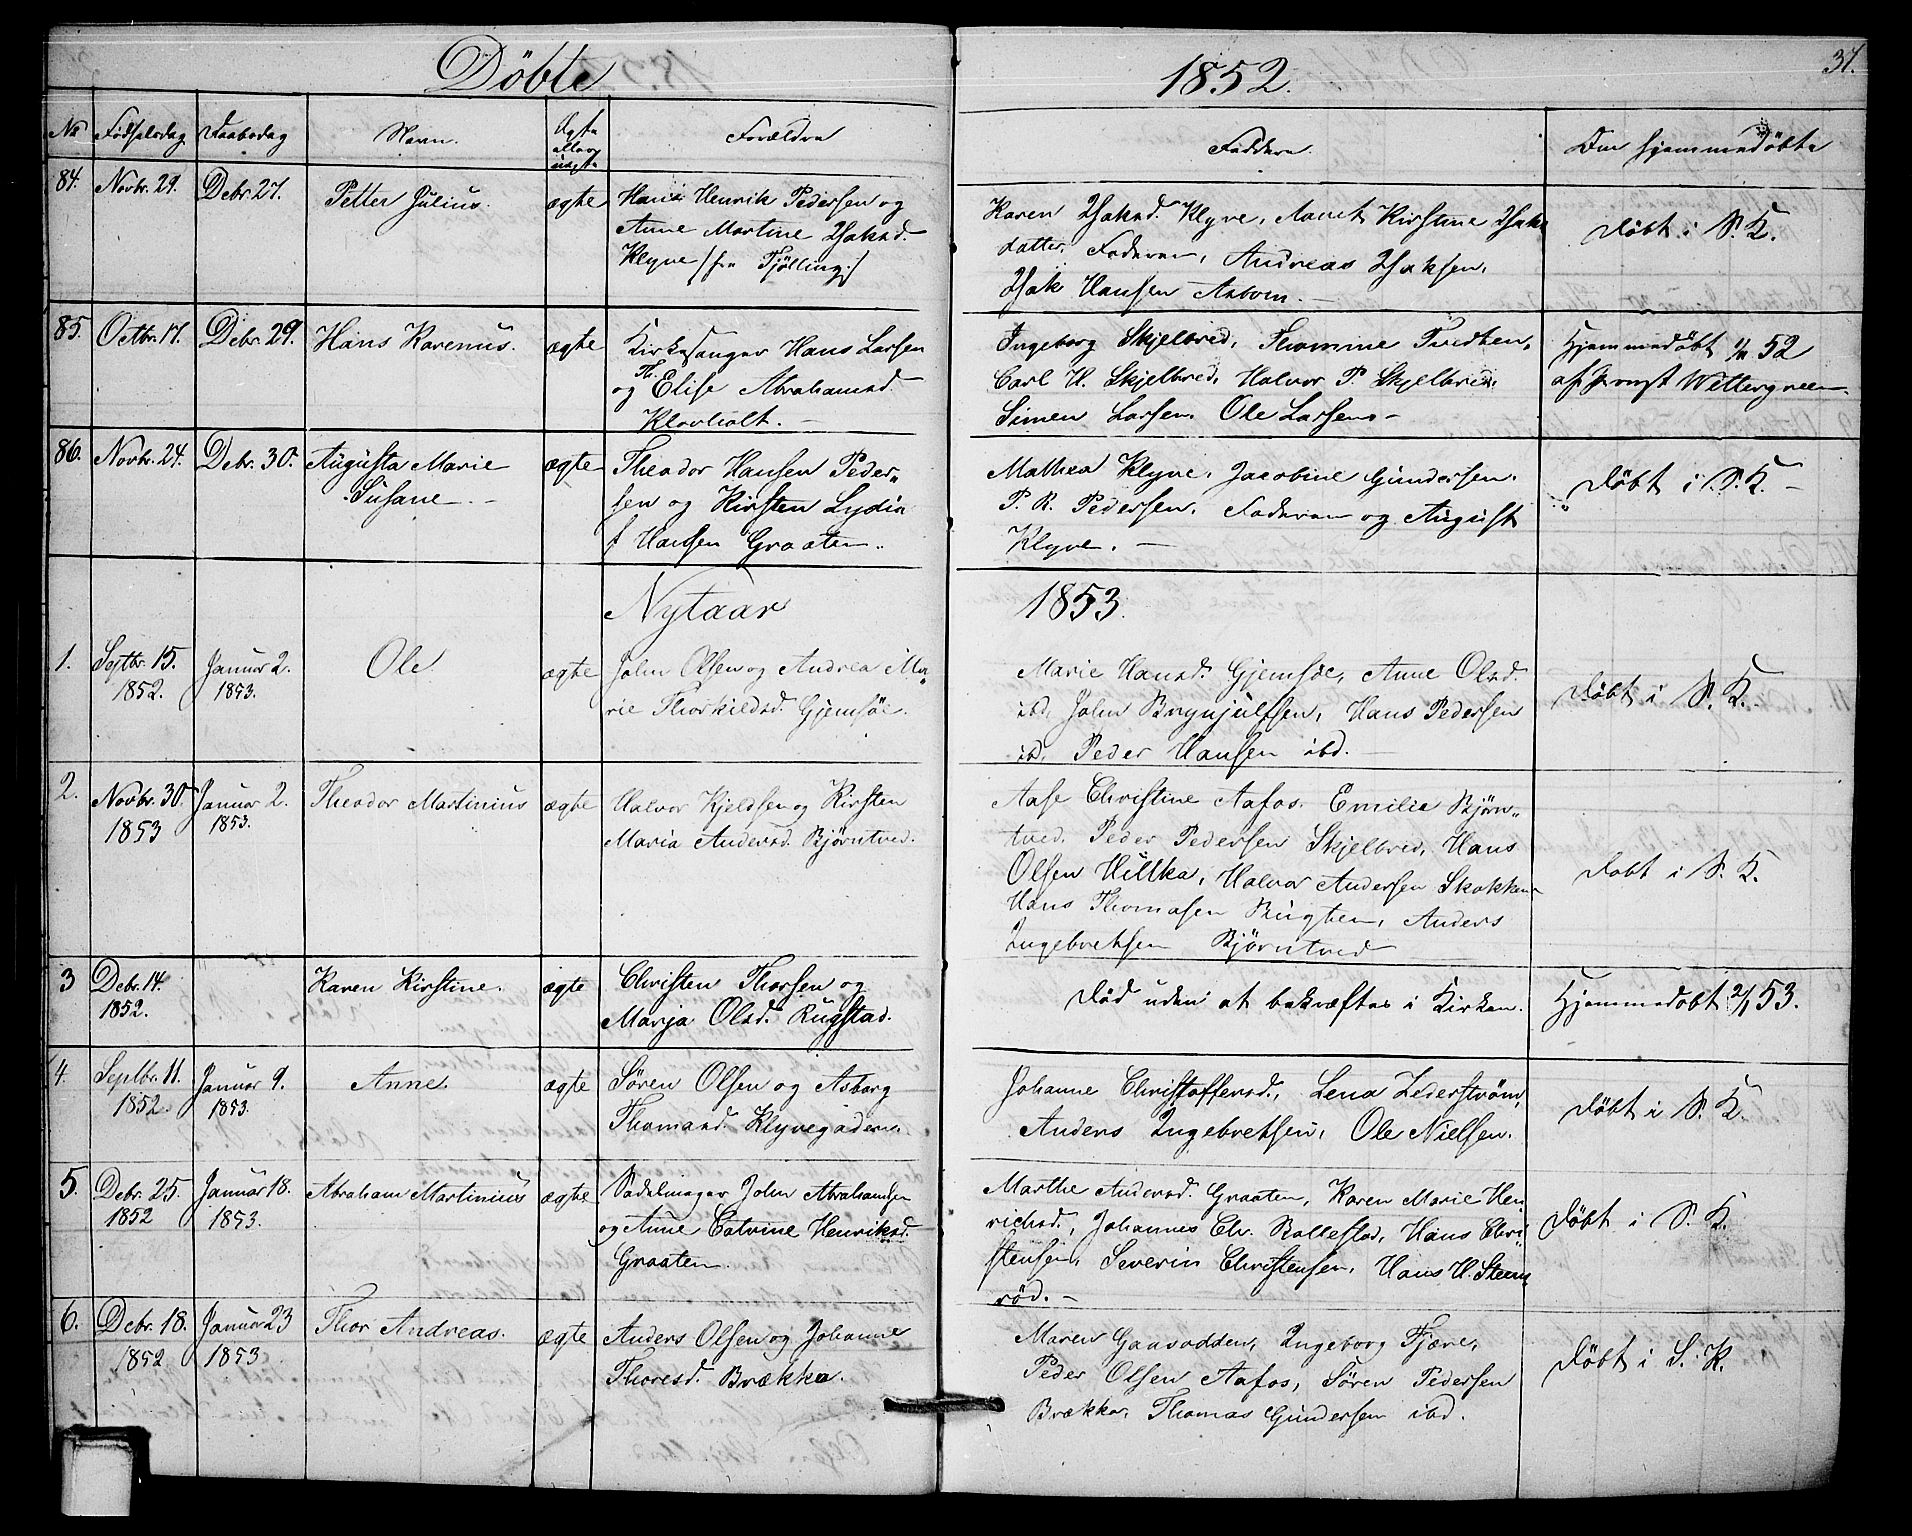 Döbte
1852.
37.
No Fødselsdag Daabsdag Navn. Ægte eller uægte Forældre Faddere. Om hjemmedöbte
84. Novbr. 29. Debr. 27. Petter Julius. ægte Hans Henrik Pedersen og
Anne Martine Isaksd.
Klyve /fra Tjölling/
Karen Isaksd. Klyve, Kirstine Isaks
datter. Faderen, Andreas Isaksen,
Isak Hansen Aabom. –
Döbt i S. K.
85. Octbr. 17. Debr. 29. Hans Karenus. ægte Kirkesanger Hans Larsen
og Th. Elise Abrahamsd.
Klovholt. –
Ingeborg Skjelbred, Thomine Tvedten,
Carl H. Skjelbred, Halvor P. Skjelbred.
Simen Larsen. Ole Larsen. –
Hjemmedöbt 52
af Provst Wettergreen
86. Novbr. 24. Debr. 30. Augusta Marie
Susane. – ægte Theodor Hansen Peder-
sen og Kirsten Lydia
f Hansen Graaten.
Mathea Klyve, Jacobine Gundersen.
P. R. Pedersen, Faderen og August
Klyve. –
Döbt i S. K. –
Nytaar
1853.
1. Septbr. 15.
1852. Januar 2.
1853. Ole. ægte John Olsen og Andrea Ma-
rie Thorkildsd. Gjemsöe.
Marie Hansd. Gjemsöe, Anne Olsd.
ibd, John Brynjulfsen, Hans Pedersen
ibd, Peder Hansen ibd. –
Döbt i S. K. –
2. Novbr. 30.
1853 Januar 2.
1853. Theodor Martinius ægte Halvor Kjeldsen og Kirsten
Maria Andersd. Björntved.
Aase Christine Aafos. Emilie Björn-
tved. Peder Pedersen Skjelbred, Hans
Olsen Hillka, Halvor Andersen
Hans Thomasen Rugtien, Anders
Ingebretsen Björntved
Döbt i S. K.
3 Debr. 14.
1852. Karen Kirstine. ægte Christen Thorsen og
Marja Olsd. Rugstad.
Död uden at bekræftes i Kirken.
Hjemmedöbt 2/1 53.
4. Septbr. 11.
1852. Januar 9.
1853. Anne. ægte Sören Olsen og Asborg
Thomasd. Klyvegaden.
Johanne Christoffersd., Lena Zederström,
Anders Ingebretsen, Ole Nielsen.
Döbt i S. K.
5. Debr. 25
1852 Januar 18.
1853. Abraham Martinius ægte Sadelmager John Abrahamsen
og Anne Catrine Henriksd.
Graaten.
Marthe Andersd. Graaten, Karen Marie Hen-
richsd., Johannes Chr. Bollestad, Hans Chri-
stensen, Severin Christensen, Hans H. Steens
röd. –
Döbt i S. K.
6. Debr. 18.
1852 Januar 23
1853. Thor Andreas. ægte Anders Olsen og Johanne
Thoresd. Brækka.
Maren Gaasodden, Ingeborg Fjære,
Peder Olsen Aafos, Sören Pedersen
Brækka, Thomas Gundersen ibd.
Döbt i S. K.